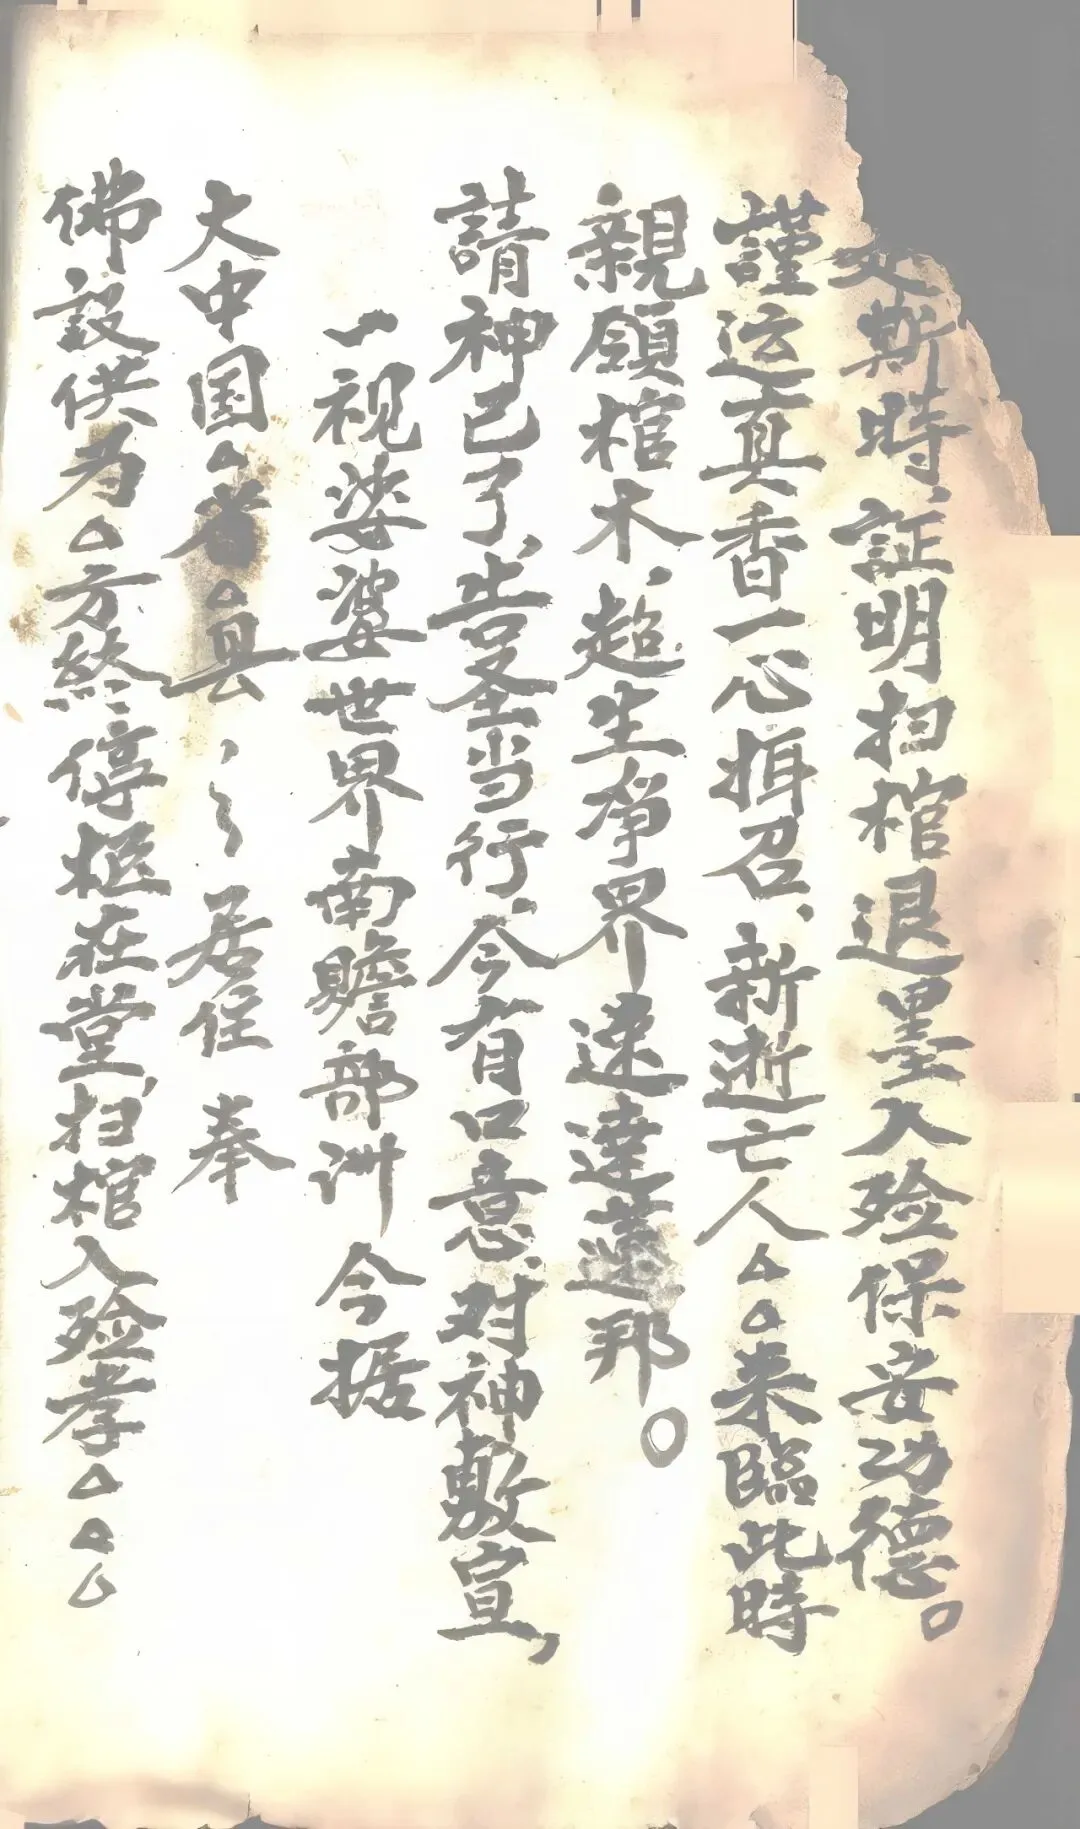 斯時、証明扫棺退墨入殓保安功德。
謹运真香一心拜召、新逝亡人△△来臨此時
親領棺木、超生净界速達蓮邦。
請神已了、告圣当行、今有口意、对神敷宣，
一视娑婆世界南贍部洲 今据
大中国△省△县〻〻居住 奉
佛設供为△方終停柩在堂，扫棺入殓孝△△△